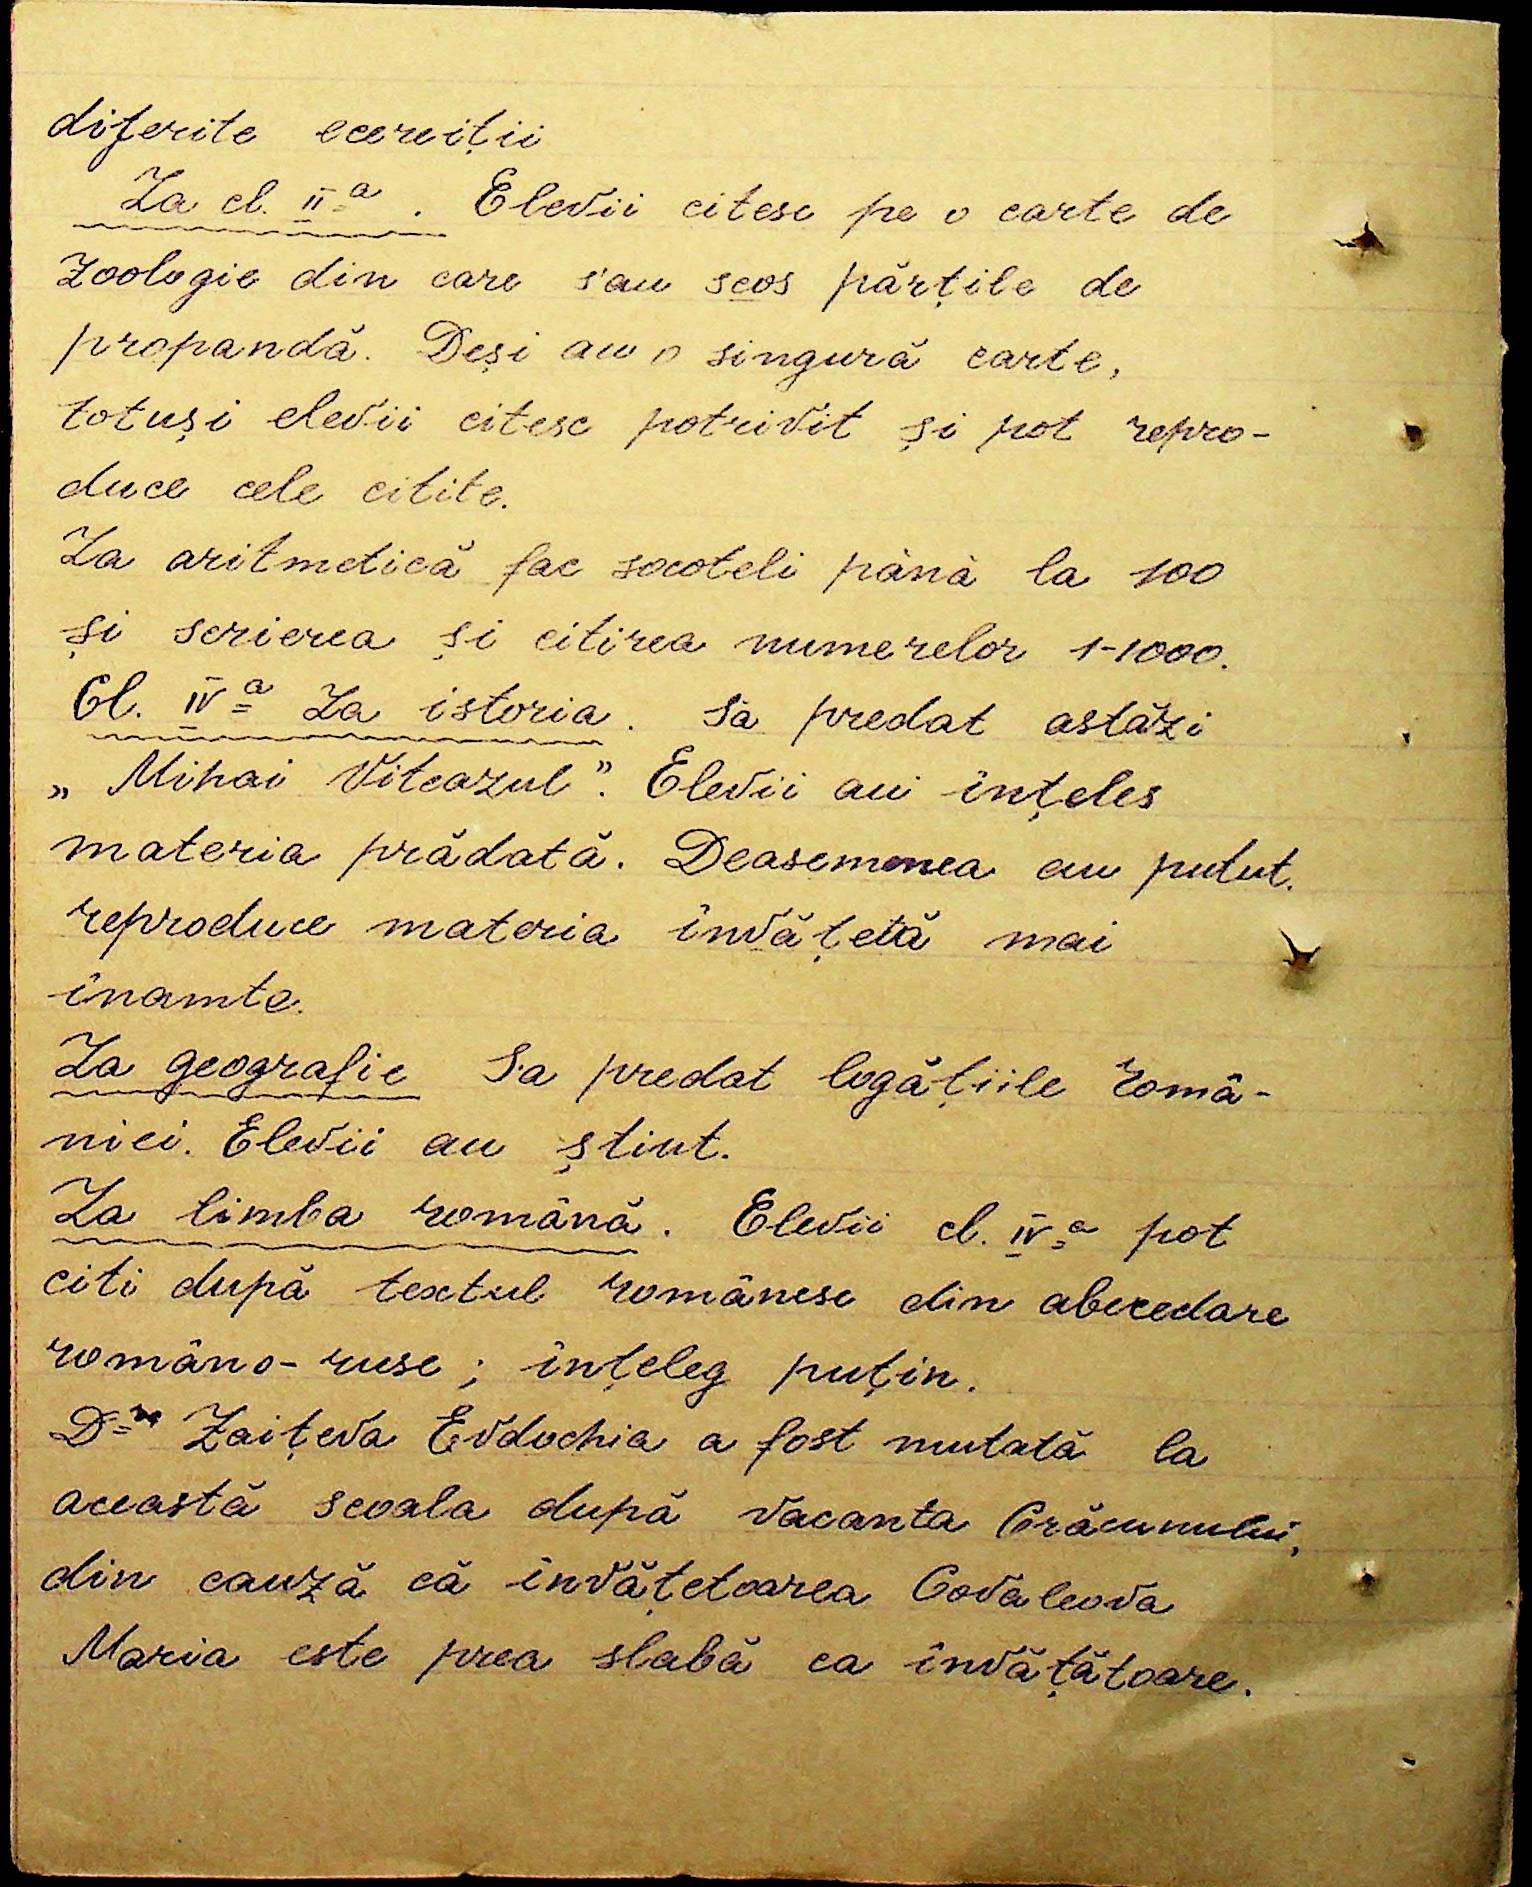 diferite ecerciții
La cl. II-a. Elevii citesc pe o carte de
zoologie din care s'au scos părțile de
propandă. Deși au o singură carte,
totuși elevii citesc potrivit și pot repro-
duce cele citite.
La aritmetică fac socoteli până la 100
și scrierea și citirea numerelor 1-1000.
Cl. IV-a La istoria. Sa predat astăzi
„Mihai Viteazul”. Elevii au înțeles
materia prădată. Deasemenea au putut.
reproduce materia învățetă mai
înamte.
La geografie Sa predat bogățiile Româ-
niei. Elevii au știut.
La limba română. Elevii cl. IV-a pot
citi după textul românesc din abecedare
româno-ruse; înțeleg puțin.
D-na Zaițeva Evdochia a fost mutată la
această scoala după vacanta Crăcunului,
din cauză că învățetoarea Covaleova
Maria este prea slabă ca învățătoare.